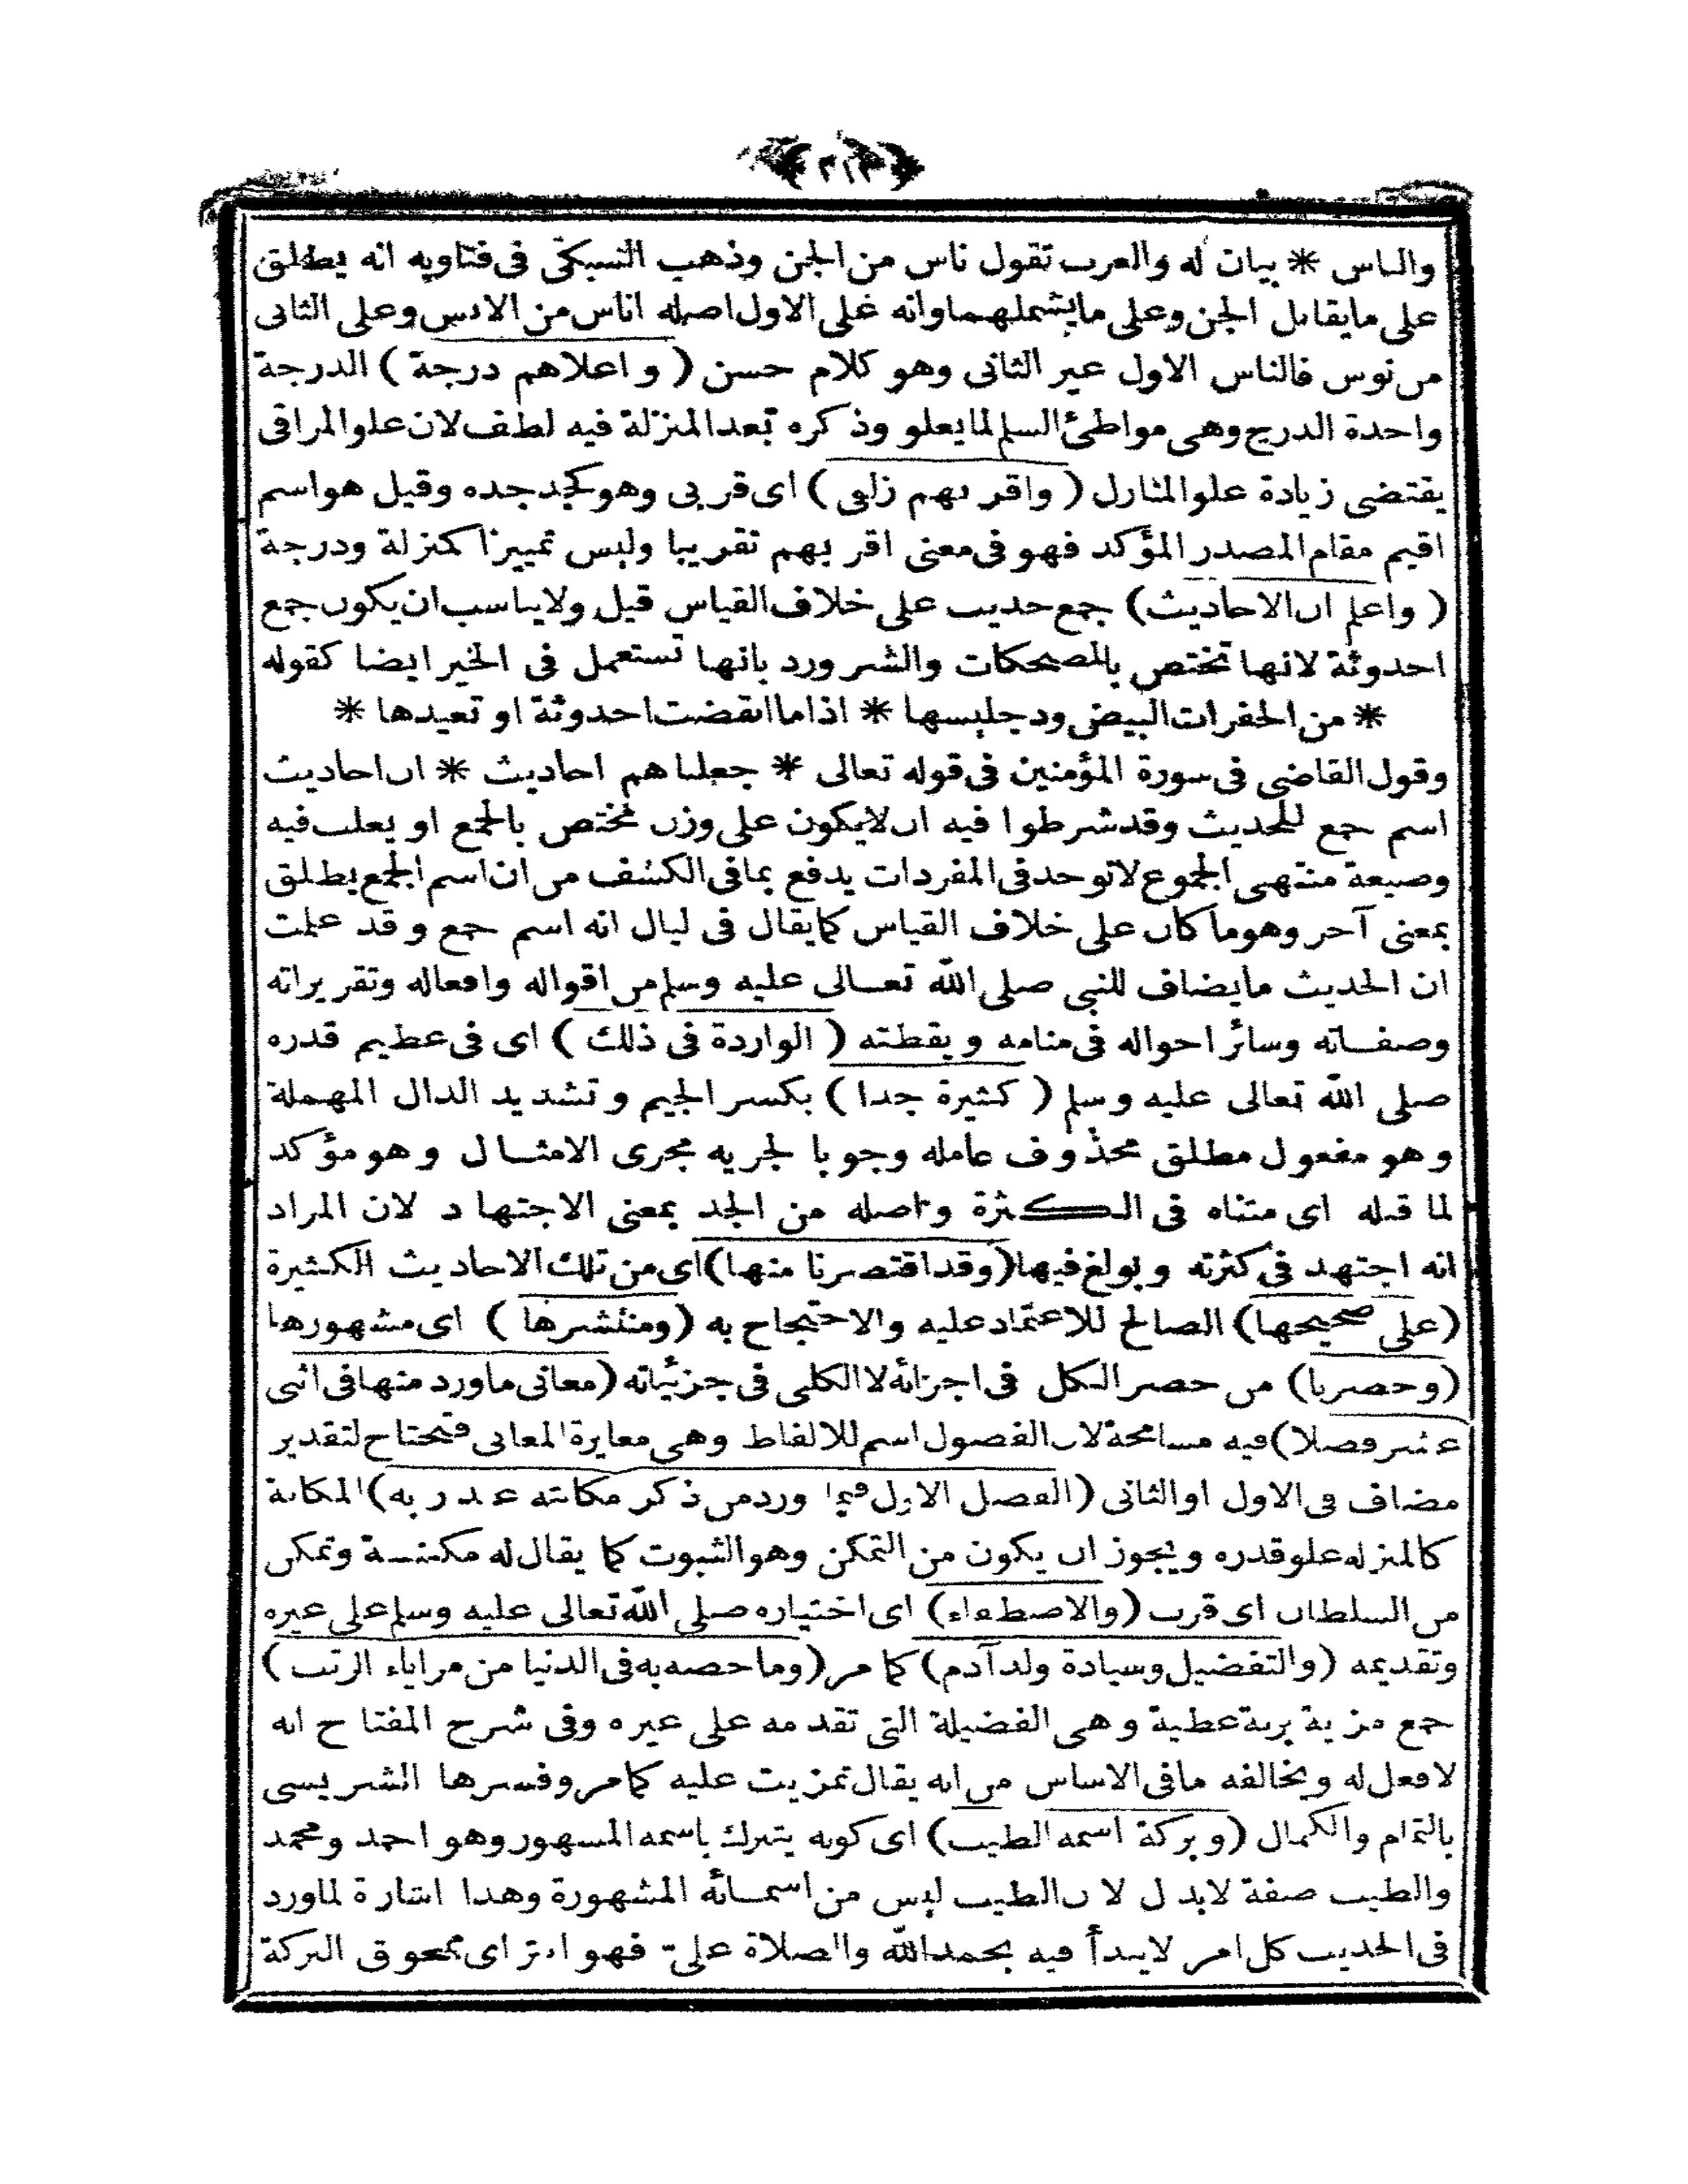 ﴿٢١٣﴾
والناس * بيان له والعرب تقول ناس من الجن وذهب السبكى فى فتاويه انه يطلق
على ما يقابل الجن وعلى ما يشملهما وانه على الاول اصله اناس من الانس وعلى الثانى
من نوس فالناس الاول غير الثانى وهو كلام حسن ( و اعلاهم درجة ) الدرجة
واحدة الدرج وهى مواطئ السلم لما يعلو وذكره بعد المنزلة فيه لطف لان علو المراقى
يقتضى زيادة علو المنازل ( واقر بهم زلفى ) اى قربى وهو كجد جده وقيل هو اسم
اقيم مقام المصدر المؤكد فهو فى معنى اقر بهم تقريبا وليس تمييزا كمنزلة ودرجة
( واعلم ان الاحاديث ) جمع حديث على خلاف القياس قيل ولا يناسب ان يكون جمع
احدوثة لانها تختص بالمضحكات والشر ورد بانها تستعمل فى الخير ايضا كقوله
* من الخفرات البيض ود جليسها * اذا ما انقضت احدوثة او تعيدها *
وقول القاضى فى سورة المؤمنين فى قوله تعالى * جعلناهم احاديث * ان احاديث
اسم جمع للحديث وقد شرطوا فيه ان لا يكون على وزن مختص بالجمع او يغلب فيه
وصيغة منتهى الجموع لا توجد فى المفردات يدفع بما فى الكشف من ان اسم الجمع يطلق
بمعنى آخر وهو ما كان على خلاف القياس كما يقال فى ليال انه اسم جمع و قد علمت
ان الحديث ما يضاف للنبى صلى الله تعـالى عليه وسلم من اقواله وافعاله وتقريراته
وصفـاته وسائر احواله فى منامه و يقظته ( الواردة فى ذلك ) اى فى عظيم قدره
صلى الله تعالى عليه وسلم ( كثيرة جدا ) بكسر الجيم و تشديد الدال المهملة
و هو مفعول مطلق محذوف عامله وجوبا لجريه مجرى الامثـال و هو مؤكد
لما قبله اى متناه فى الكثرة واصله من الجد بمعنى الاجتهاد لان المراد
انه اجتهد فى كثرته و بولغ فيها (وقد اقتصرنا منها) اى من تلك الاحاديث الكثيرة
(على صحيحها) الصالح للاعتماد عليه والاحتجاج به (ومنتشرها ) اى مشهورها
(وحصرنا) من حصر الكل فى اجزائه لا الكلى فى جزئياته (معانى ما ورد منها فى اثنى
عشر فصلا) فيه مسامحة لان الفصول اسم للالفاظ وهى مغايرة المعانى فتحتاج لتقدير
مضاف فى الاول او الثانى (الفصل الاول فيما ورد من ذكر مكانته عند ربه) المكانة
كالمنزله علو قدره و يجوز ان يكون من التمكن وهو الثبوت كما يقال له مكنسة وتمكن
من السلطان اى قرب (والاصطفاء) اى اختياره صلى الله تعالى عليه وسلم على غيره
وتقديمه (والتفضيل وسيادة ولد آدم) كما مر (وما خصه به فى الدنيا من مزاياء الرتب )
جمع مزية برنة عطية و هى الفضيلة التى تقدمه على غيره وفى شرح المفتاح انه
لا فعل له و يخالفه ما فى الاساس من انه يقال تمزيت عليه كما مر وفسرها الشريسى
بالتمام والكمال (و بركة اسمه الطيب) اى كونه يتبرك باسمه المشهور وهو احمد ومحمد
والطيب صفة لا بدل لان الطيب ليس من اسمـائه المشهورة وهذا اشارة لما ورد
فى الحديث كل امر لا يبدأ فيه بحمد الله والصلاة علىّ فهو ابتر اى ممحوق البركة